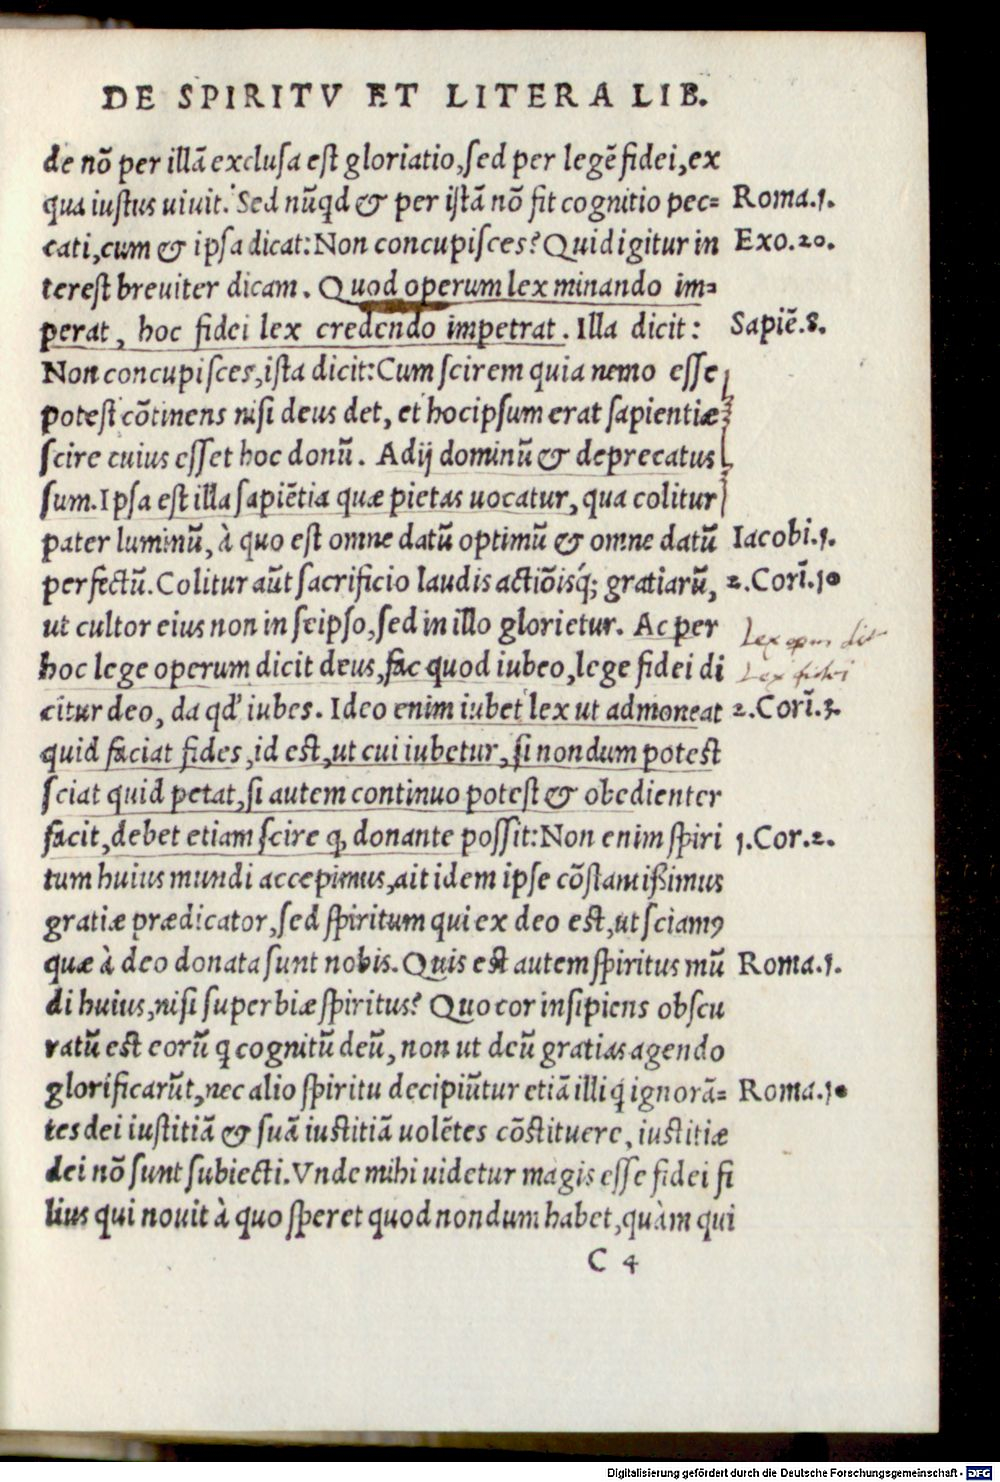 DE SPIRITV ET LITERA LIB.
de nõ per illã exclusa est gloriatio, sed per legẽ fidei, ex
qua iustus uiuit. Sed nũqd & per istã nõ fit cognitio pec= Roma.1.
cati, cum & ipsa dicat: Non concupisces? Quid igitur in Exo.20.
terest breuiter dicam. Quod operum lex minando im=
perat, hoc fidei lex credendo impetrat. Illa dicit: Sapiẽ.8.
Non concupisces, ista dicit: Cum scirem quia nemo esse
potest cõtinens nisi deus det, et hoc ipsum erat sapientiæ
scire cuius esset hoc donũ. Adij dominũ & deprecatus
sum. Ipsa est illa sapiẽtia quæ pietas uocatur, qua colitur
pater luminũ, à quo est omne datũ optimũ & omne datũ Iacobi.1.
perfectũ. Colitur aũt sacrificio laudis actiõisq́; gratiarũ, 2.Corĩ.10
ut cultor eius non in seipso, sed in illo glorietur. Ac per
hoc lege operum dicit deus, fac quod iubeo, lege fidei di
Lex fidei
citur deo, da qd' iubes. Ideo enim iubet lex ut admoneat 2.Corĩ.3.
quid faciat fides, id est, ut cui iubetur, si nondum potest
sciat quid petat, si autem continuo potest & obedienter
facit, debet etiam scire q̨ donante possit: Non enim spiri 1.Cor.2.
tum huius mundi accepimus, ait idem ipse cõstantißimus
gratiæ prædicator, sed spiritum qui ex deo est, ut sciamꝰ
quæ à deo donata sunt nobis. Quis est autem spiritus mũ Roma.1.
di huius, nisi superbiæ spiritus? Quo cor insipiens obscu
ratũ est eorũ q̇ cognitũ deũ, non ut deũ gratias agendo
glorificarũt, nec alio spiritu decipiũtur etiã illi q̇ ignorã= Roma.10
tes dei iustitiã & suã iustitiã uolẽtes cõstituere, iustitiæ
dei nõ sunt subiecti. Vnde mihi uidetur magis esse fidei fi
lius qui nouit à quo speret quod nondum habet, quàm qui
C 4
Digitalisierung gefördert durch die Deutsche Forschungsgemeinschaft - DFG